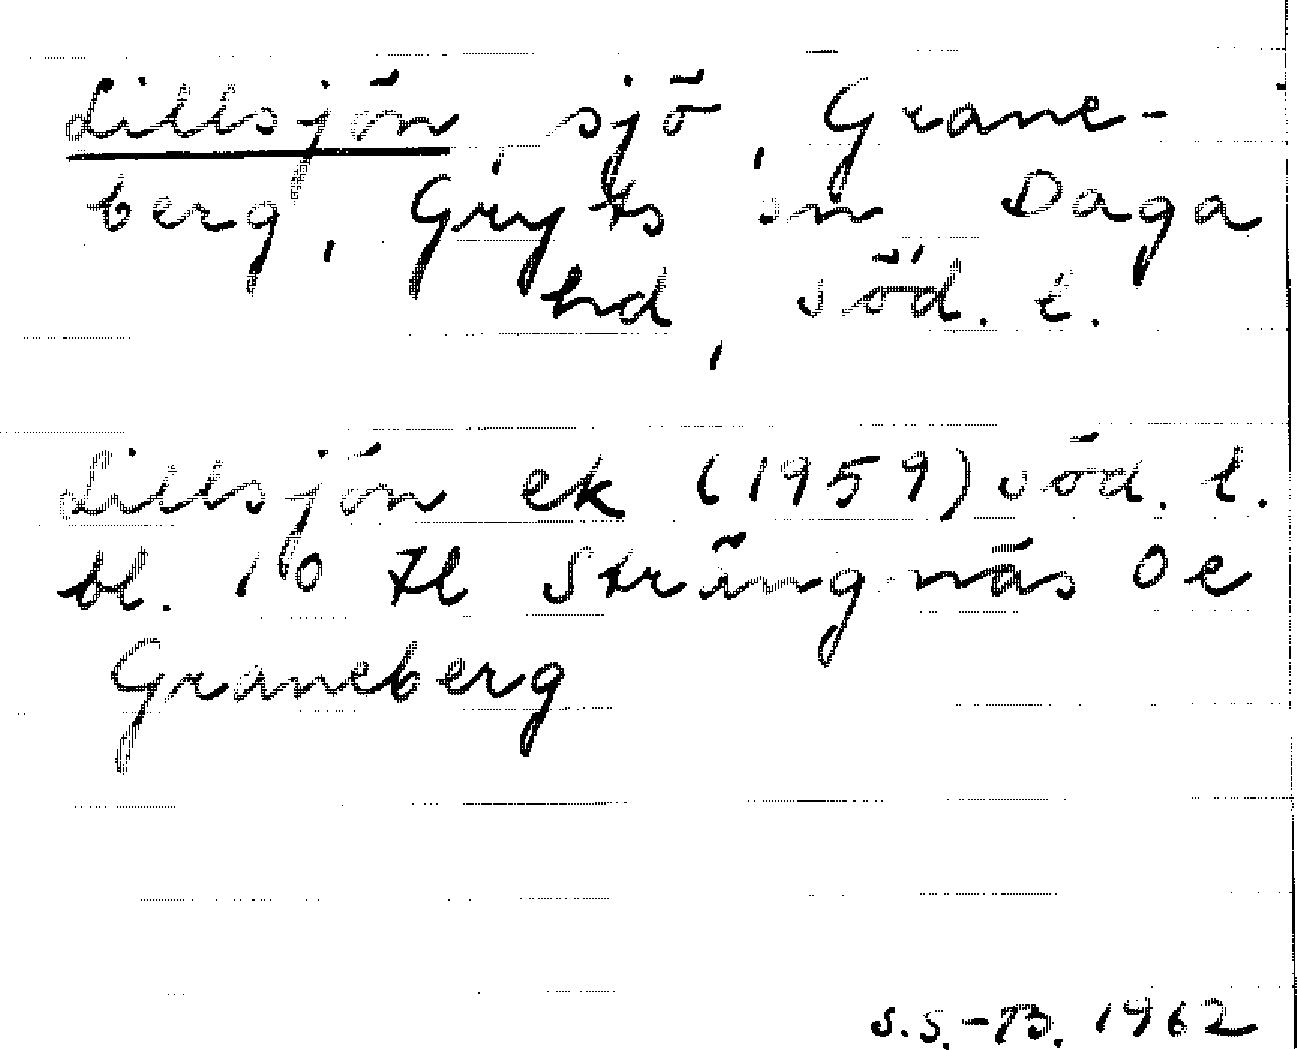 Lillsjön, sjö, Grane-
berg, Gryts sn Daga
hd, Söd. l.
Lillsjön ek (1959) Söd. l.
bl. 10 tl Strängnäs Oe
Graneberg
S.S.-B. 1962